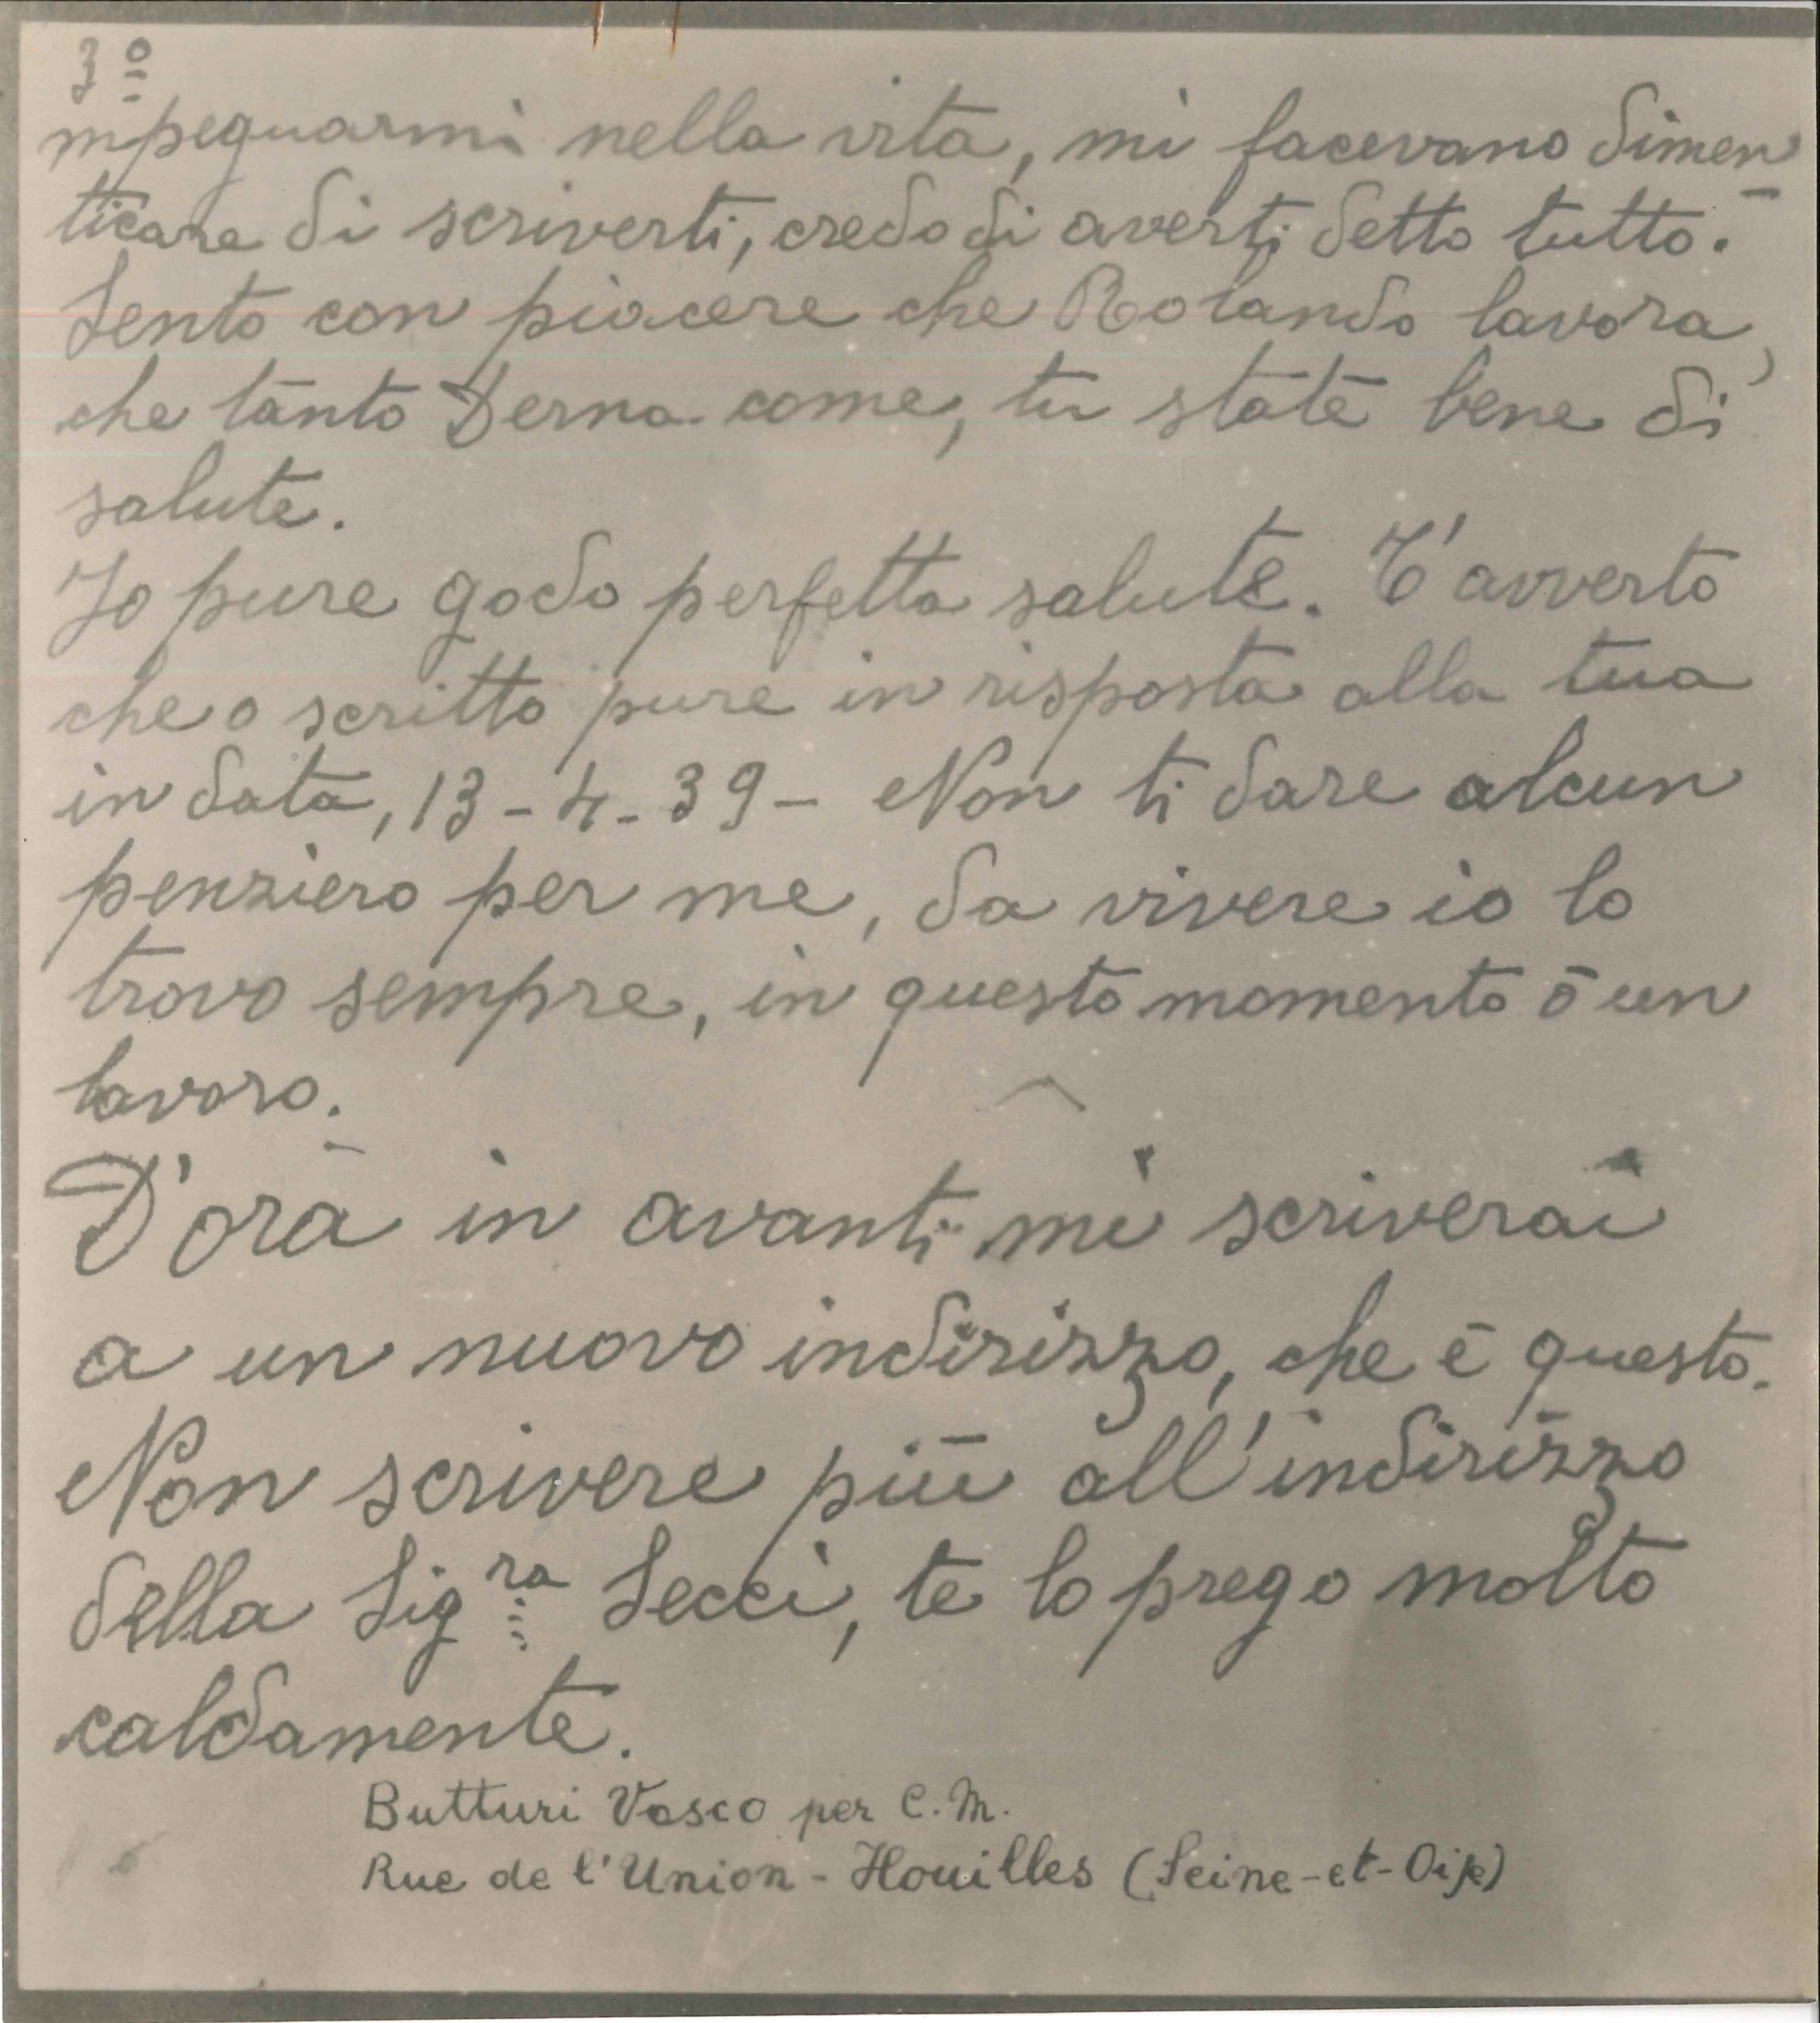 3º
mpegnarmi nella vita, mi facevano dimen
ticare di scriverti, credo di averti detto tutto.
Sento con piacere che Rolando lavora,
che tanto Derna come, tu state bene di
salute.
Io pure godo perfetta salute. T'avverto
che o scritto pure in risposta alla tua
in data, 13-4-39- Non ti dare alcun
penziero per me, da vivere io lo
trovo sempre, in questo momento ō un
lavoro.
D'ora in avanti mi scriverai
a un nuovo indirizzo, che ē questo.
Non scrivere piū all'indirizzo
della Sigra Secci, te lo prego molto
caldamente.
Butturi Vasco per C. M.
Rue de l'Union - Houilles (Seine-et-Oise)